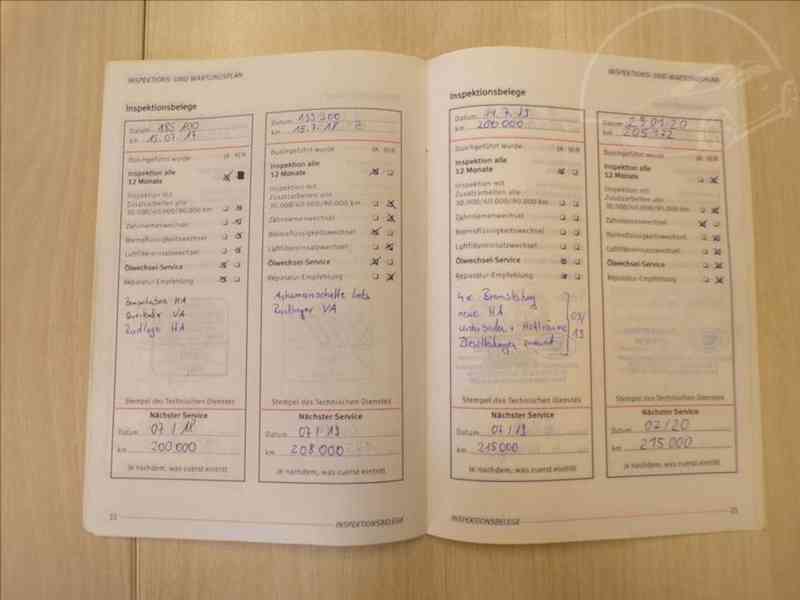 INSPEKTIONS- UND WARTUNGSPLAN
Inspektionsbelege
Datum 185 100
km 15.07.17
Durchgeführt wurde JA NEIN
Inspektion alle
12 Monate
Inspektion mit
Zusatzarbeiten alle
30.000/60.000/90.000 km
Zahnriemenwechsel
Bremsflüssigkeitswechsel
Luftfiltereinsatzwechsel
Ölwechsel-Service
Reparatur-Empfehlung
HA
VA
HA
Stempel des Technischen Dienstes
Nächster Service
Datum 07/18
km 200 000
Je nachdem, was zuerst eintritt
Datum 193 200
km 15.7.18
Durchgeführt wurde JA NEIN
Inspektion alle
12 Monate
Inspektion mit
Zusatzarbeiten alle
30.000/60.000/90.000 km
Zahnriemenwechsel
Bremsflüssigkeitswechsel
Luftfiltereinsatzwechsel
Ölwechsel-Service
Reparatur-Empfehlung
Achsmanschette links
Radlager VA
Stempel des Technischen Dienstes
Nächster Service
Datum 07/19
km 208 000
Je nachdem, was zuerst eintritt
INSPEKTIONSBELEGE
INSPEKTIONS- UND WARTUNGSPLAN
Inspektionsbelege
Datum 11.7.19
km 200 000
Durchgeführt wurde JA NEIN
Inspektion alle
12 Monate
Inspektion mit
Zusatzarbeiten alle
30.000/60.000/90.000 km
Zahnriemenwechsel
Bremsflüssigkeitswechsel
Luftfiltereinsatzwechsel
Ölwechsel-Service
Reparatur-Empfehlung
4x
neue HA
03/
19
Stempel des Technischen Dienstes
Nächster Service
Datum 07/19
km 215000
Je nachdem, was zuerst eintritt
Datum 29.01.20
km
Durchgeführt wurde JA NEIN
Inspektion alle
12 Monate
Inspektion mit
Zusatzarbeiten alle
30.000/60.000/90.000 km
Zahnriemenwechsel
Bremsflüssigkeitswechsel
Luftfiltereinsatzwechsel
Ölwechsel-Service
Reparatur-Empfehlung
Stempel des Technischen Dienstes
Nächster Service
Datum 07/20
km 215 000
Je nachdem, was zuerst eintritt
INSPEKTIONSBELEGE